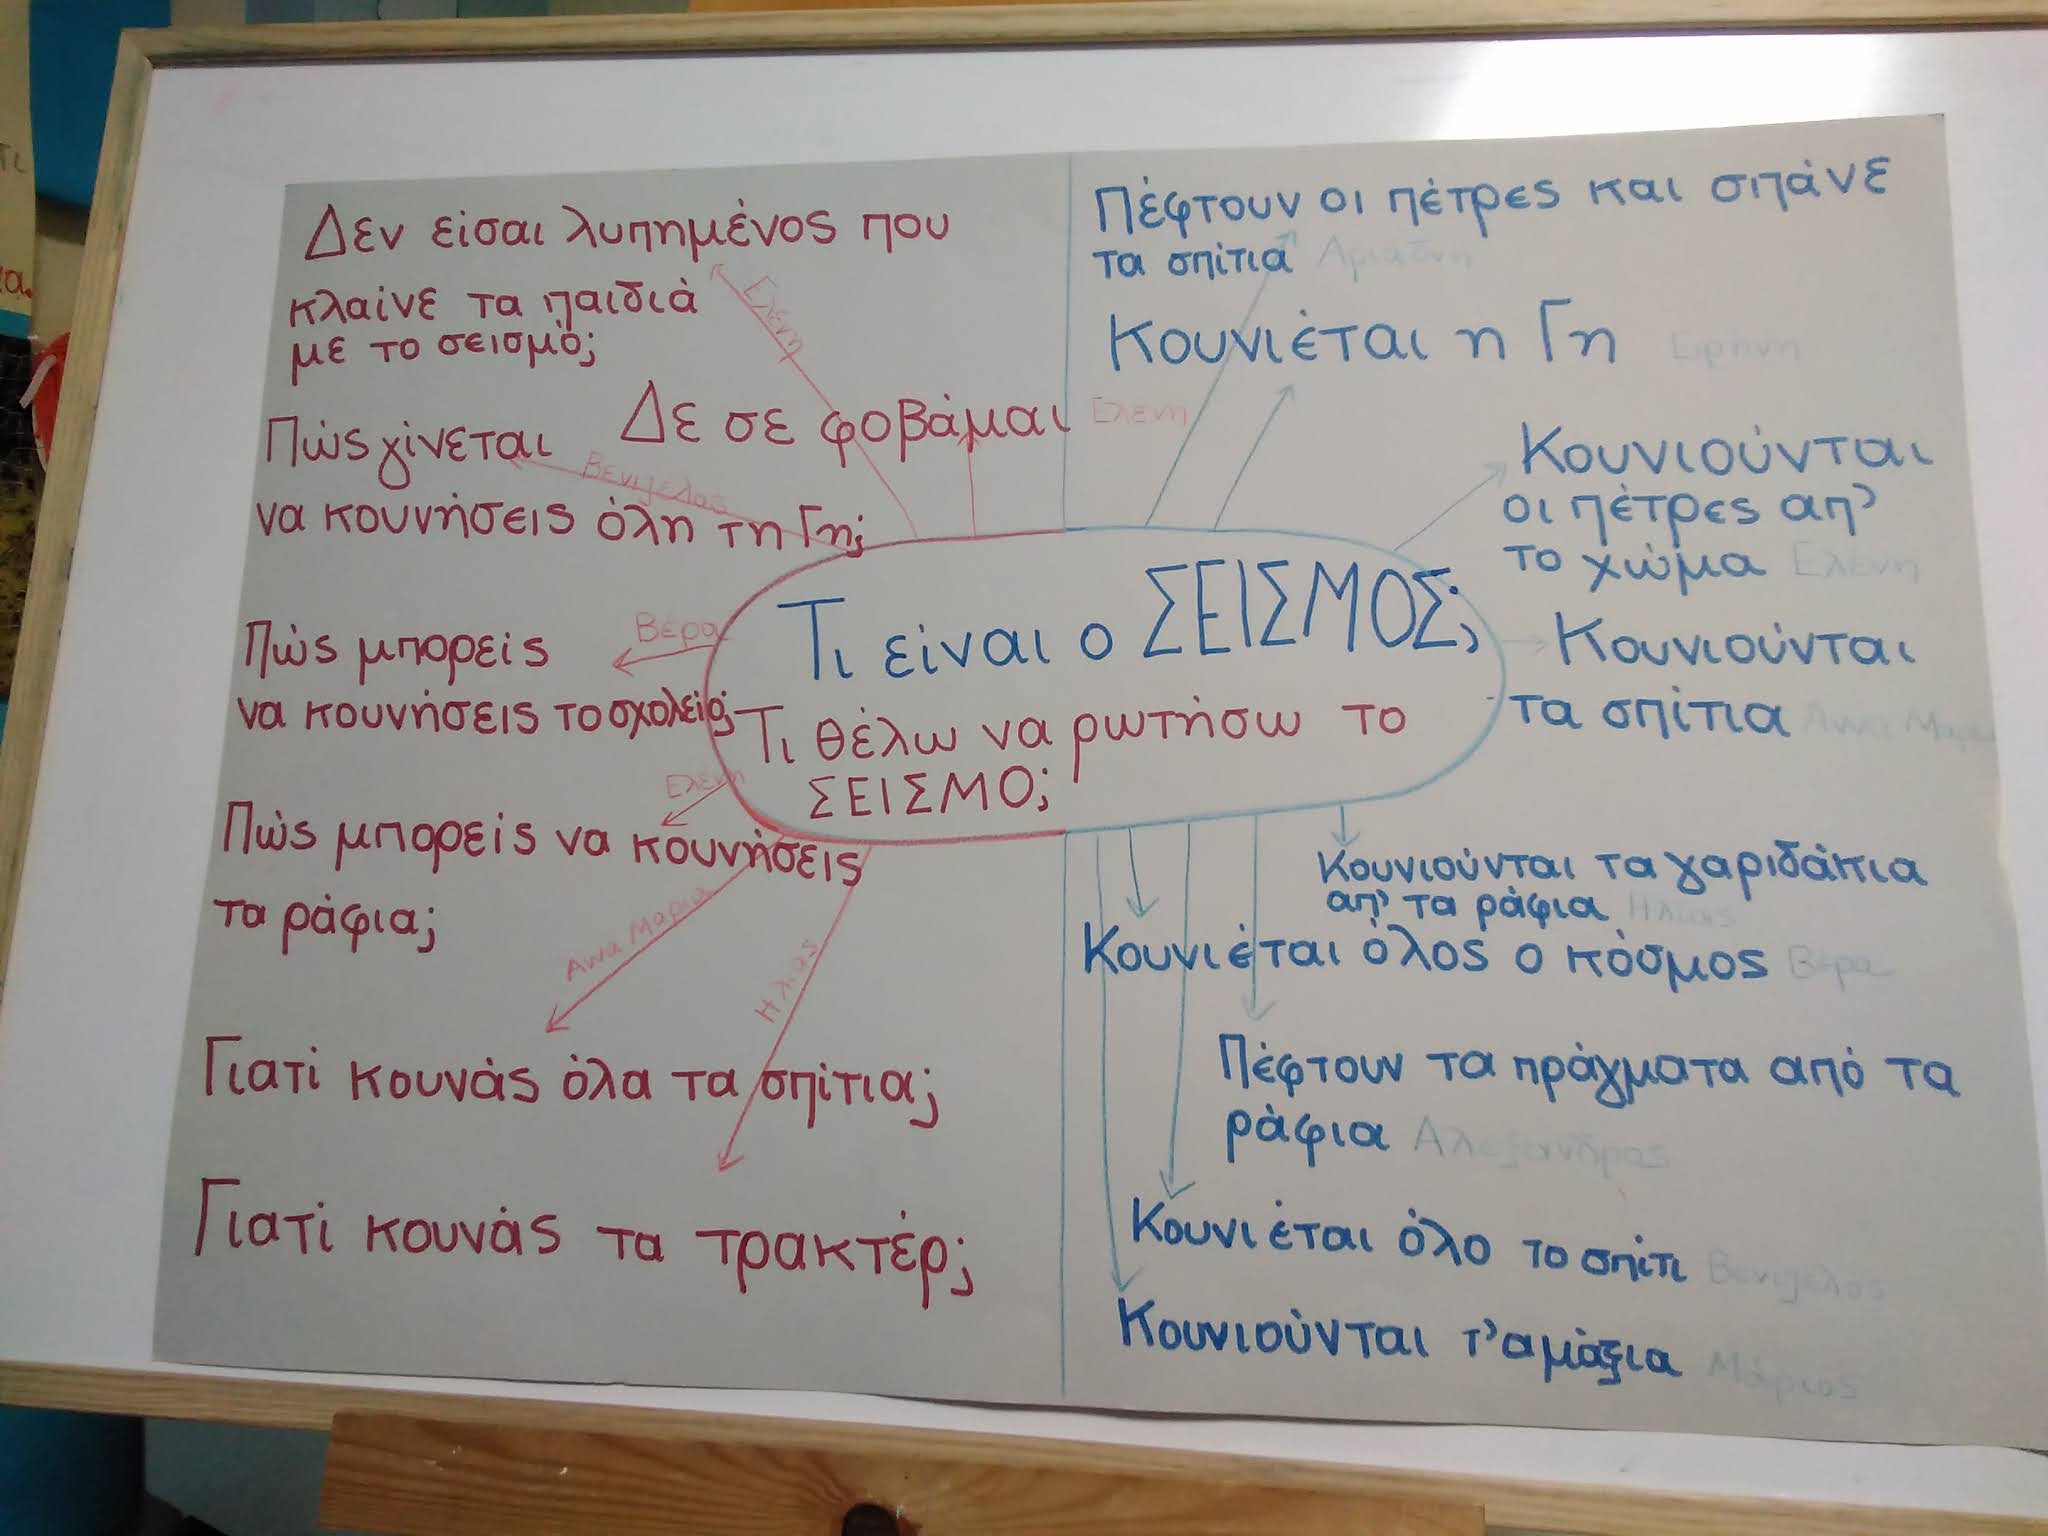 Δεν είσαι λυπημένος που
κλαίνε τα παιδιά
με το σεισμό;
Ελένη
Δε σε φοβάμαι Ελένη
Πώς γίνεται
Βενιζέλος
να κουνήσεις όλη τη Γη;
Πώς μπορείς
Βέρα
να κουνήσεις το σχολείο;
Ελένη
Πώς μπορείς να κουνήσεις
τα ράφια;
Άννα Μαρία
Ηλίας
Γιατί κουνάς όλα τα σπίτια;
Γιατί κουνάς τα τρακτέρ;
Τι είναι ο ΣΕΙΣΜΟΣ;
Τι θέλω να ρωτήσω το
ΣΕΙΣΜΟ;
Πέφτουν οι πέτρες και σπάνε
τα σπίτια Αριάδνη
Κουνιέται η Γη Ειρήνη
Κουνιούνται
οι πέτρες απ'
το χώμα Ελένη
Κουνιούνται
τα σπίτια Άννα Μαρία
Κουνιούνται τα γαριδάκια
απ' τα ράφια Ηλίας
Κουνιέται όλος ο κόσμος Βέρα
Πέφτουν τα πράγματα από τα
ράφια Αλέξανδρος
Κουνιέται όλο το σπίτι Βενιζέλος
Κουνιούνται τ'αμάξια Μάριος